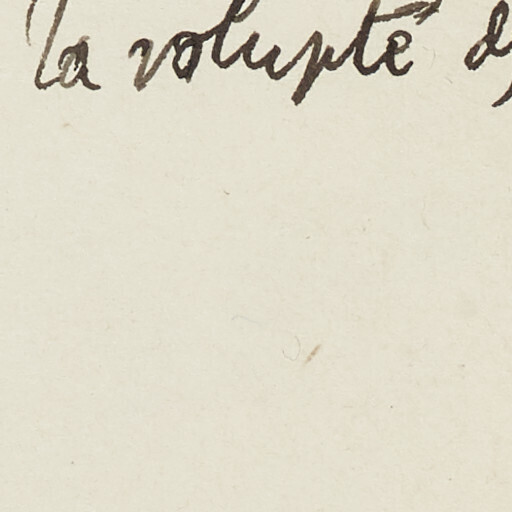 la volupté